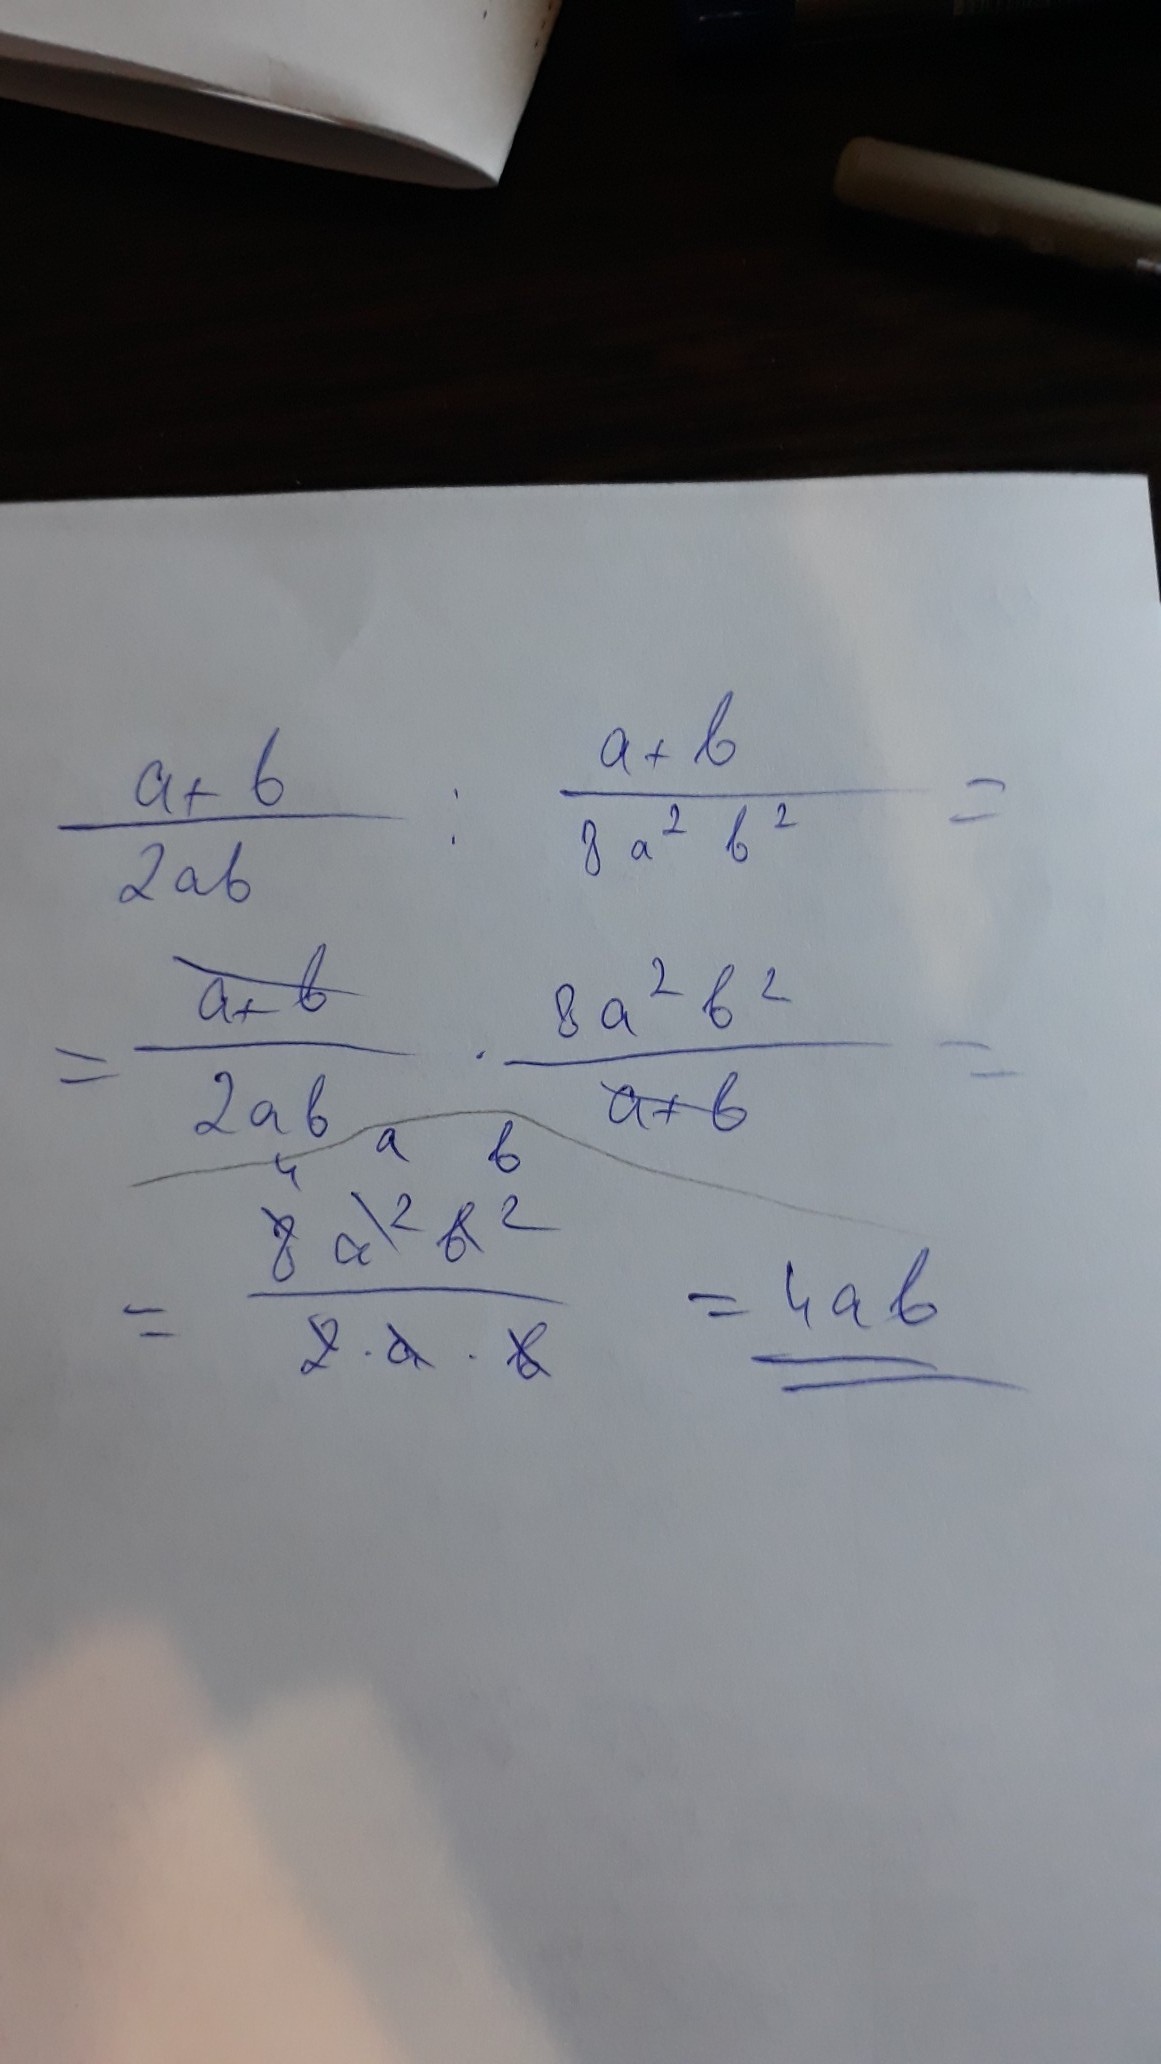 a+b/2ab : a+b/8a² b² =
= a+b/2ab · 8a² b²/a+b =
4 a b
= 8 a² b²/2 · a · b = 4ab